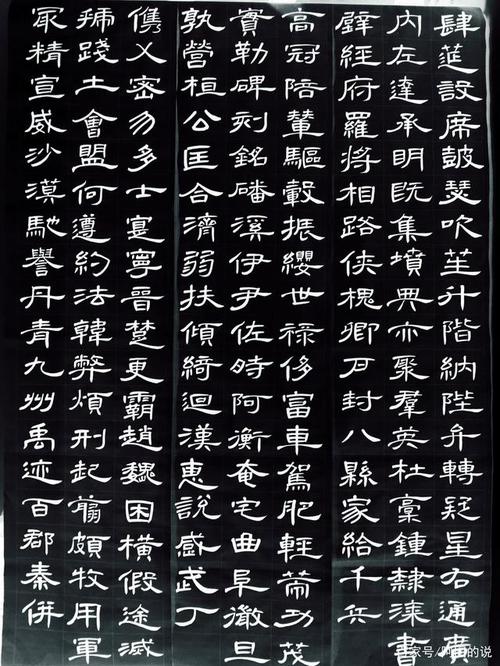 肆筵設席鼓瑟吹笙升階納陛弁轉疑星右通廣
內左達承明既集墳典亦聚羣英杜稾鍾隸漆書
壁經府羅將相路俠槐卿戶封八縣家給千兵
高冠陪輦驅轂振纓世祿侈富車駕肥輕策功茂
實勒碑刻銘磻溪伊尹佐時阿衡奄宅曲阜微旦
孰營桓公匡合濟弱扶傾綺迴漢惠說感武丁
儁乂密勿多士寔寧晉楚更霸趙魏困橫假途滅
虢踐土會盟何遵約法韓弊煩刑起翦頗牧用軍
最精宣威沙漠馳譽丹青九州禹迹百郡秦併